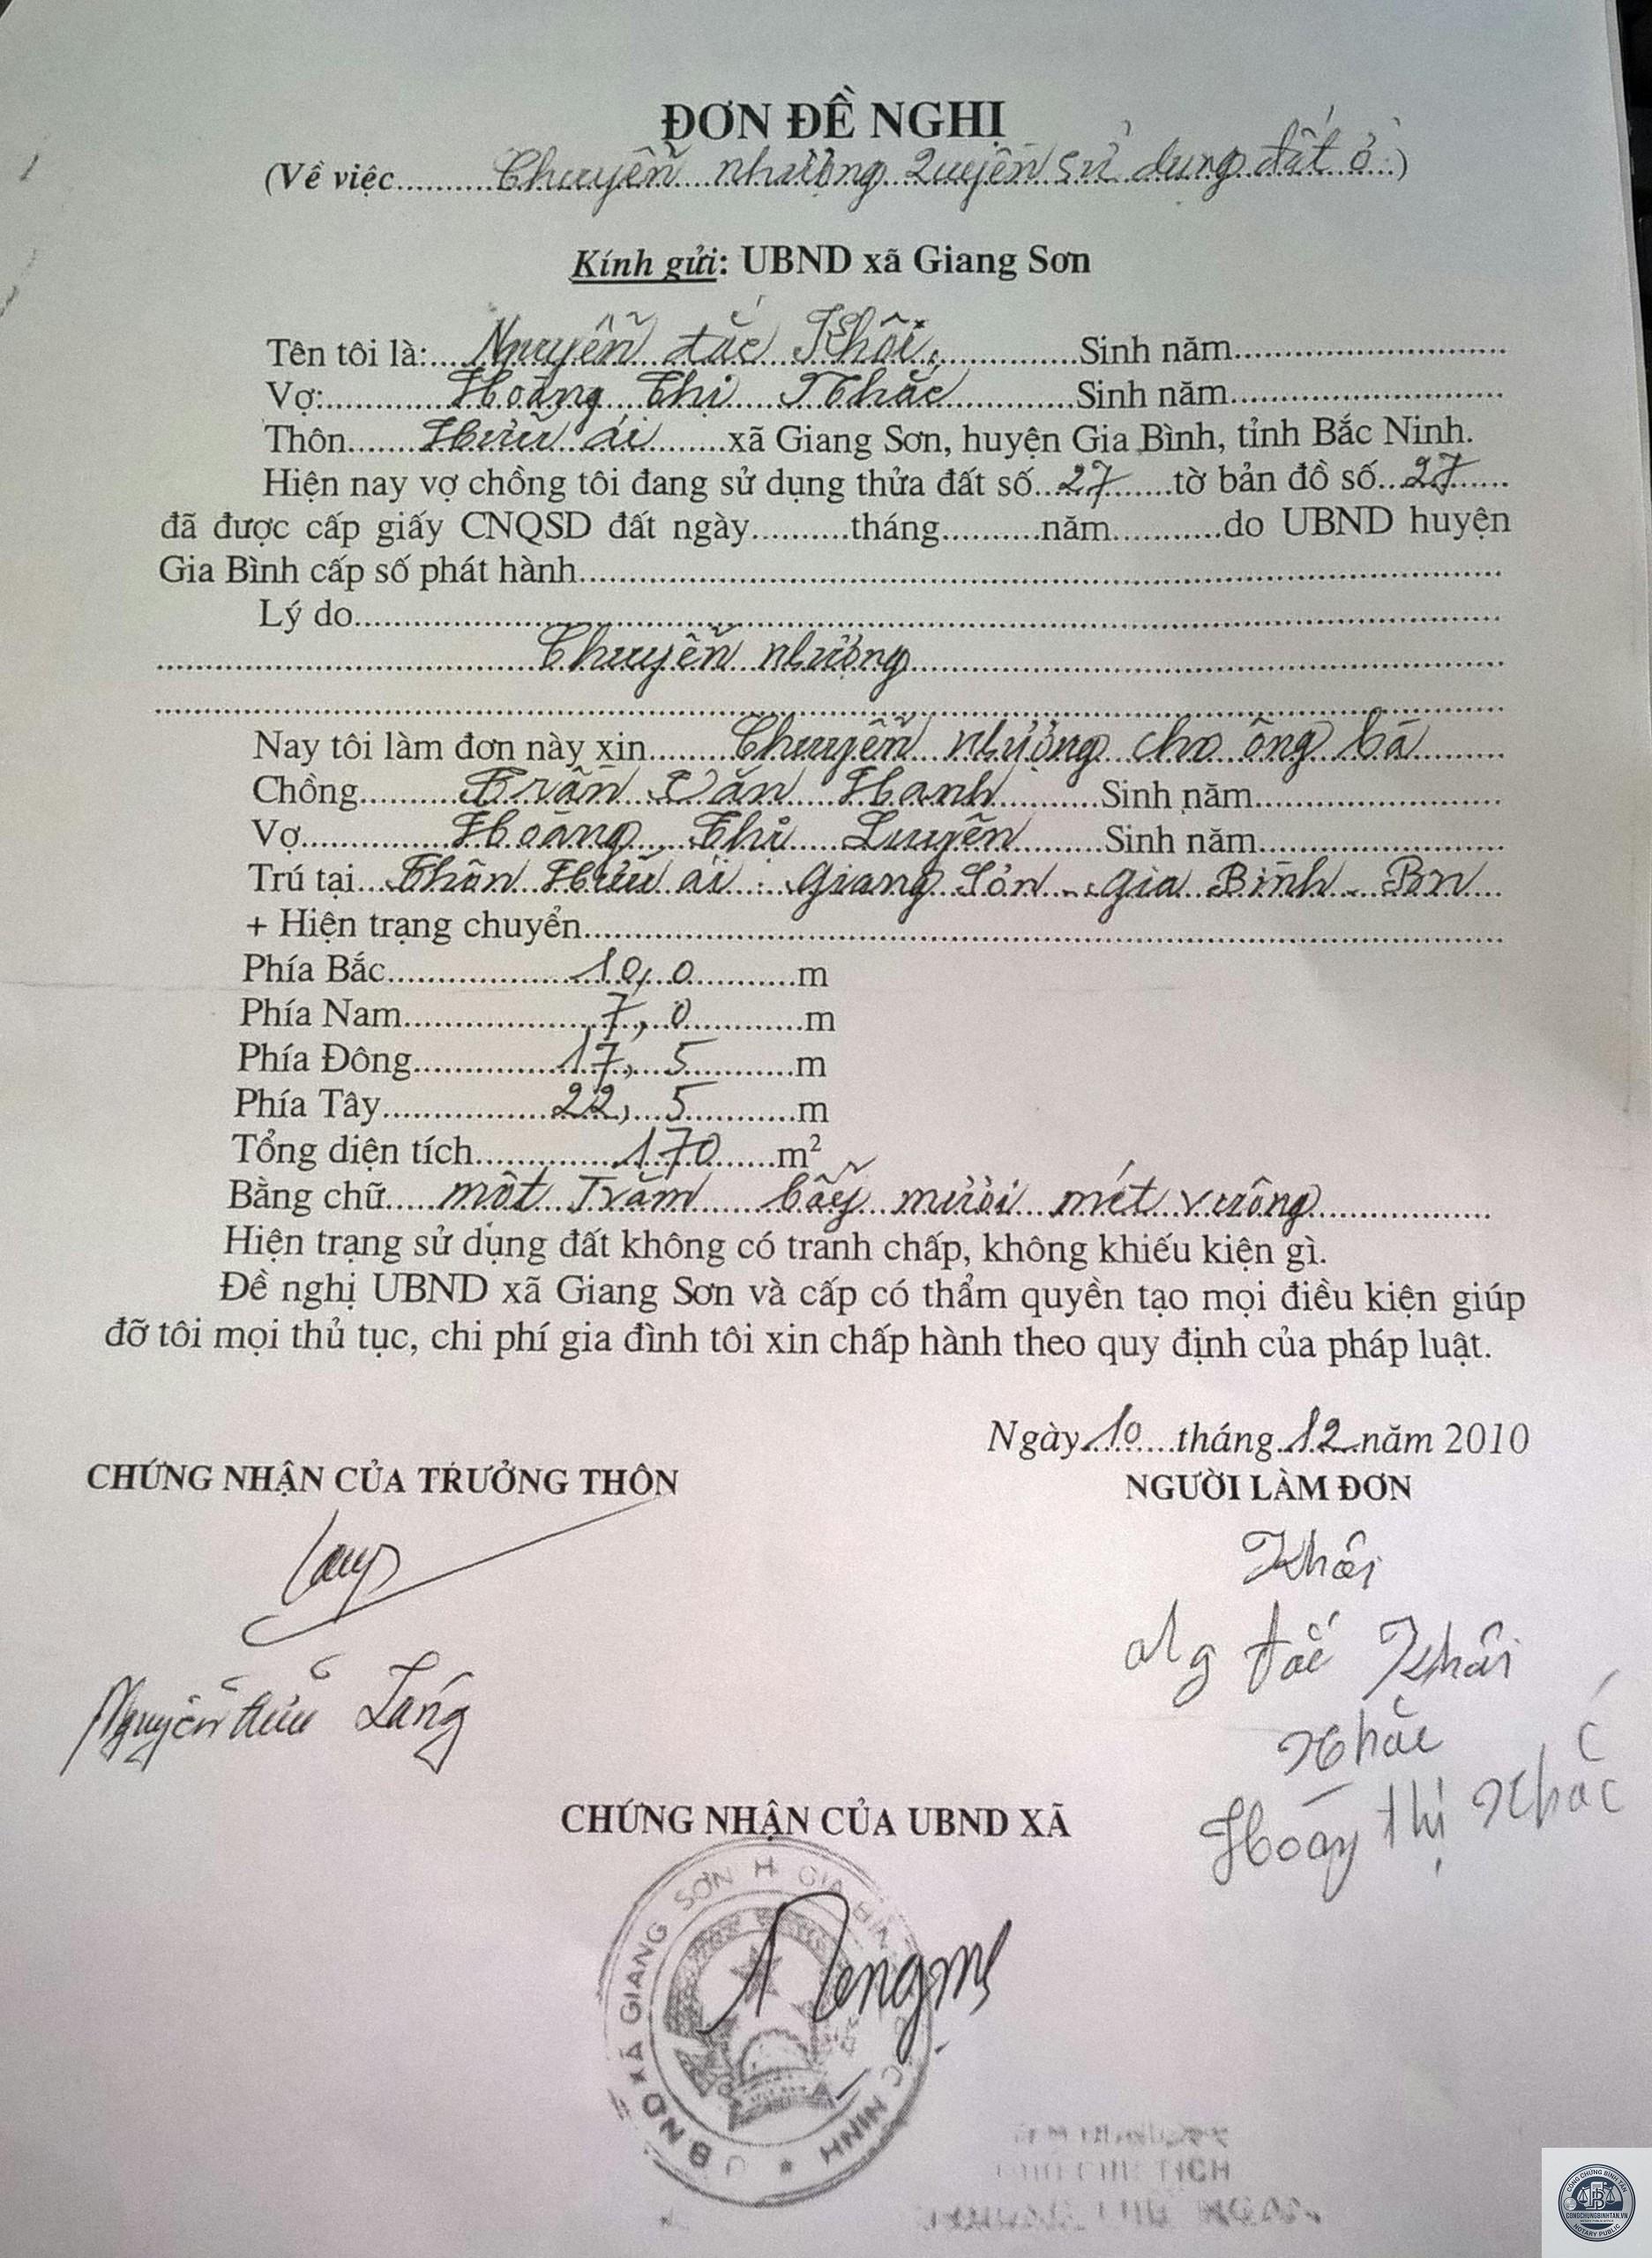 ĐƠN ĐỀ NGHỊ
(Về việc..........Chuyển nhượng Quyền sử dụng đất ở..)
Kính gửi: UBND xã Giang Sơn
Tên tôi là:....Nguyễn đắc Khôi..............Sinh năm............................
Vợ:............Hoàng Thị Nhắc............Sinh năm............................
Thôn.......Hữu ái........xã Giang Sơn, huyện Gia Bình, tỉnh Bắc Ninh.
Hiện nay vợ chồng tôi đang sử dụng thửa đất số...27.......tờ bản đồ số...27......
đã được cấp giấy CNQSD đất ngày..........tháng..........năm...........do UBND huyện
Gia Bình cấp số phát hành....................................................
Lý do....................................................
..............................Chuyển nhượng..............................
....................................................
Nay tôi làm đơn này xin........Chuyển nhượng cho ông bà........
Chồng..........Trần Văn Hanh..........Sinh năm.........................
Vợ...............Hoàng Thị Luyên........Sinh năm.........................
Trú tại...Thôn Hữu ái - Giang Sơn - Gia Bình - BN...
+ Hiện trạng chuyển....................................................
Phía Bắc..................10,0............m
Phía Nam....................7,0............m
Phía Đông...............17,5...........m
Phía Tây.................22,5...........m
Tổng diện tích..............170.......m²
Bằng chữ.....một Trăm bẩy mươi mét vuông..................
Hiện trạng sử dụng đất không có tranh chấp, không khiếu kiện gì.
Đề nghị UBND xã Giang Sơn và cấp có thẩm quyền tạo mọi điều kiện giúp
đỡ tôi mọi thủ tục, chi phí gia đình tôi xin chấp hành theo quy định của pháp luật.
Ngày..10....tháng.12..năm 2010
CHỨNG NHẬN CỦA TRƯỞNG THÔN
NGƯỜI LÀM ĐƠN
Khôi
Ng đắc Khôi
Nguyễn Hữu Láng
Nhắc
Hoàng Thị Nhắc
CHỨNG NHẬN CỦA UBND XÃ
UBND XÃ GIANG SƠN H GIA BÌNH
NINH
TỊCH
CÔNG CHỨNG BÌNH TÂN
CONGCHUNGBINHTAN.VN
NOTARY PUBLIC